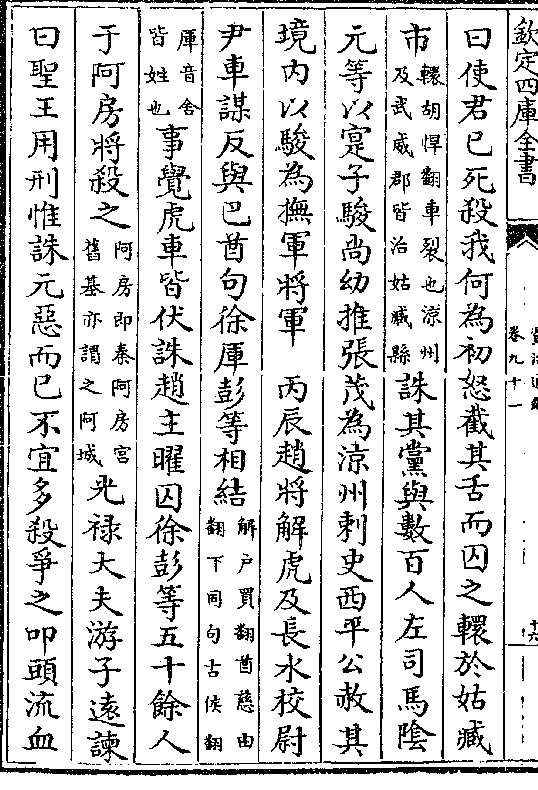 欽定四庫全書
卷九十一
曰使君已死殺我何為初怒截其舌而囚之轘於姑臧
市轘胡悍翻車裂也涼州及武威郡皆治姑臧縣誅其黨與數百人左司馬陰
元等以寔子駿尚幼推張茂為涼州刺史西平公赦其
境內以駿為撫軍將軍 丙辰趙將解虎及長水校尉
尹車謀反與巴酋句徐厙彭等相結解戶買翻酋慈由翻下同句古侯翻
厙音舍皆姓也事覺虎車皆伏誅趙主曜囚徐彭等五十餘人
于阿房將殺之阿房即秦阿房宮舊基亦謂之阿城光祿大夫游子遠諫
曰聖王用刑惟誅元惡而已不宜多殺爭之叩頭流血